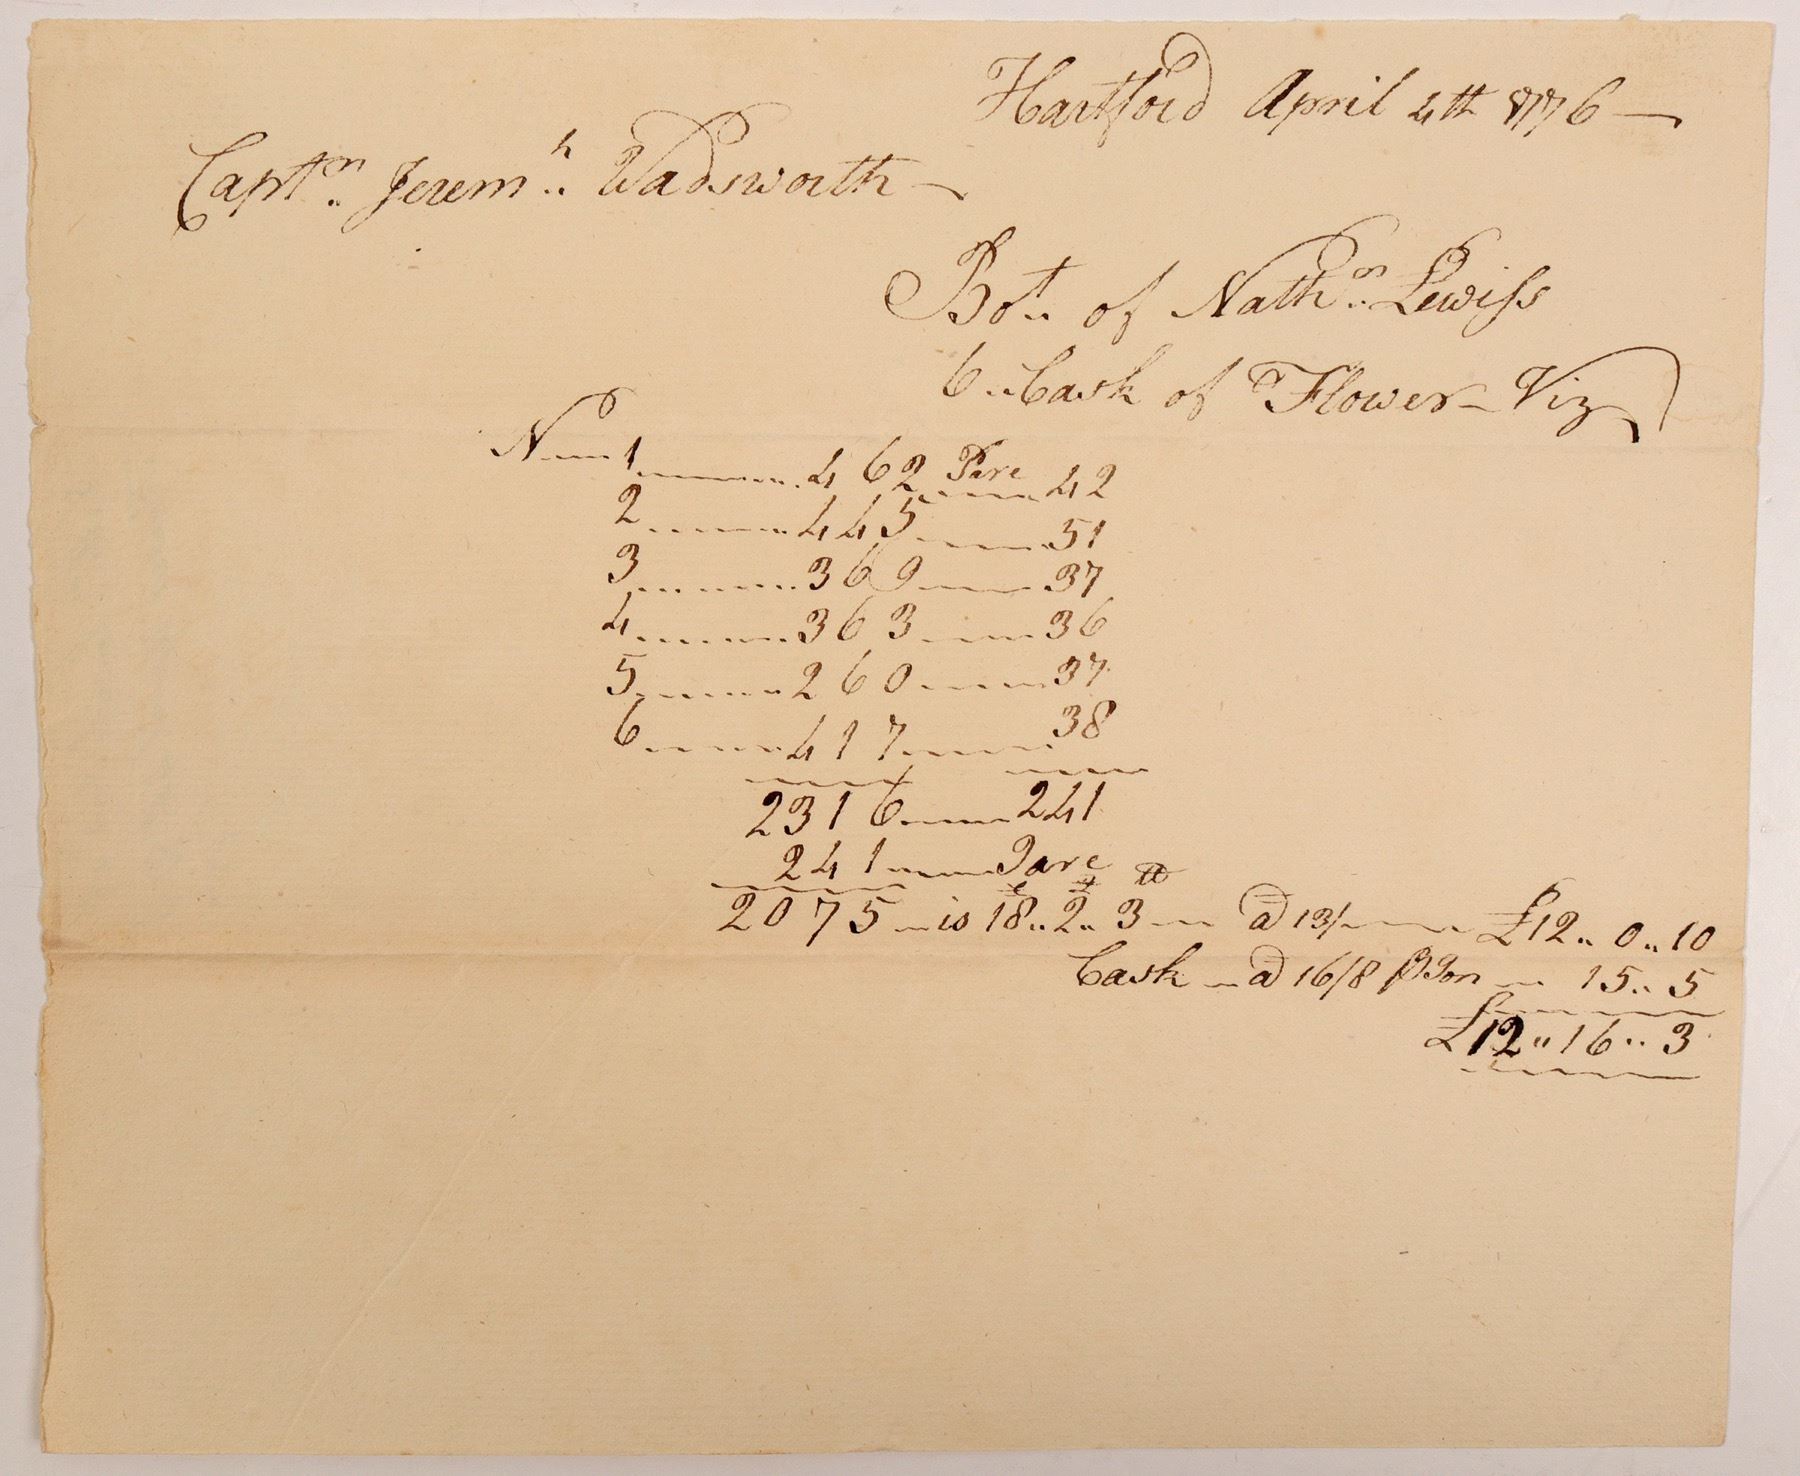 Hartford April 4th 1776
Captn Jeremh Wadsworth
Bot. of Nathn Lewiss
6 Cask of Flower Viz
N 1 462 Tare 42
2 445 51
3 369 37
4 363 36
5 260 37
6 417 38
2316 241
241 Tare
2075 is 18 .. 2 .. 3 @ 13/ £12 .. 0 .. 10
Cask @ 16/8 ⅌ Ton 15 .. 5
£12 .. 16 .. 3